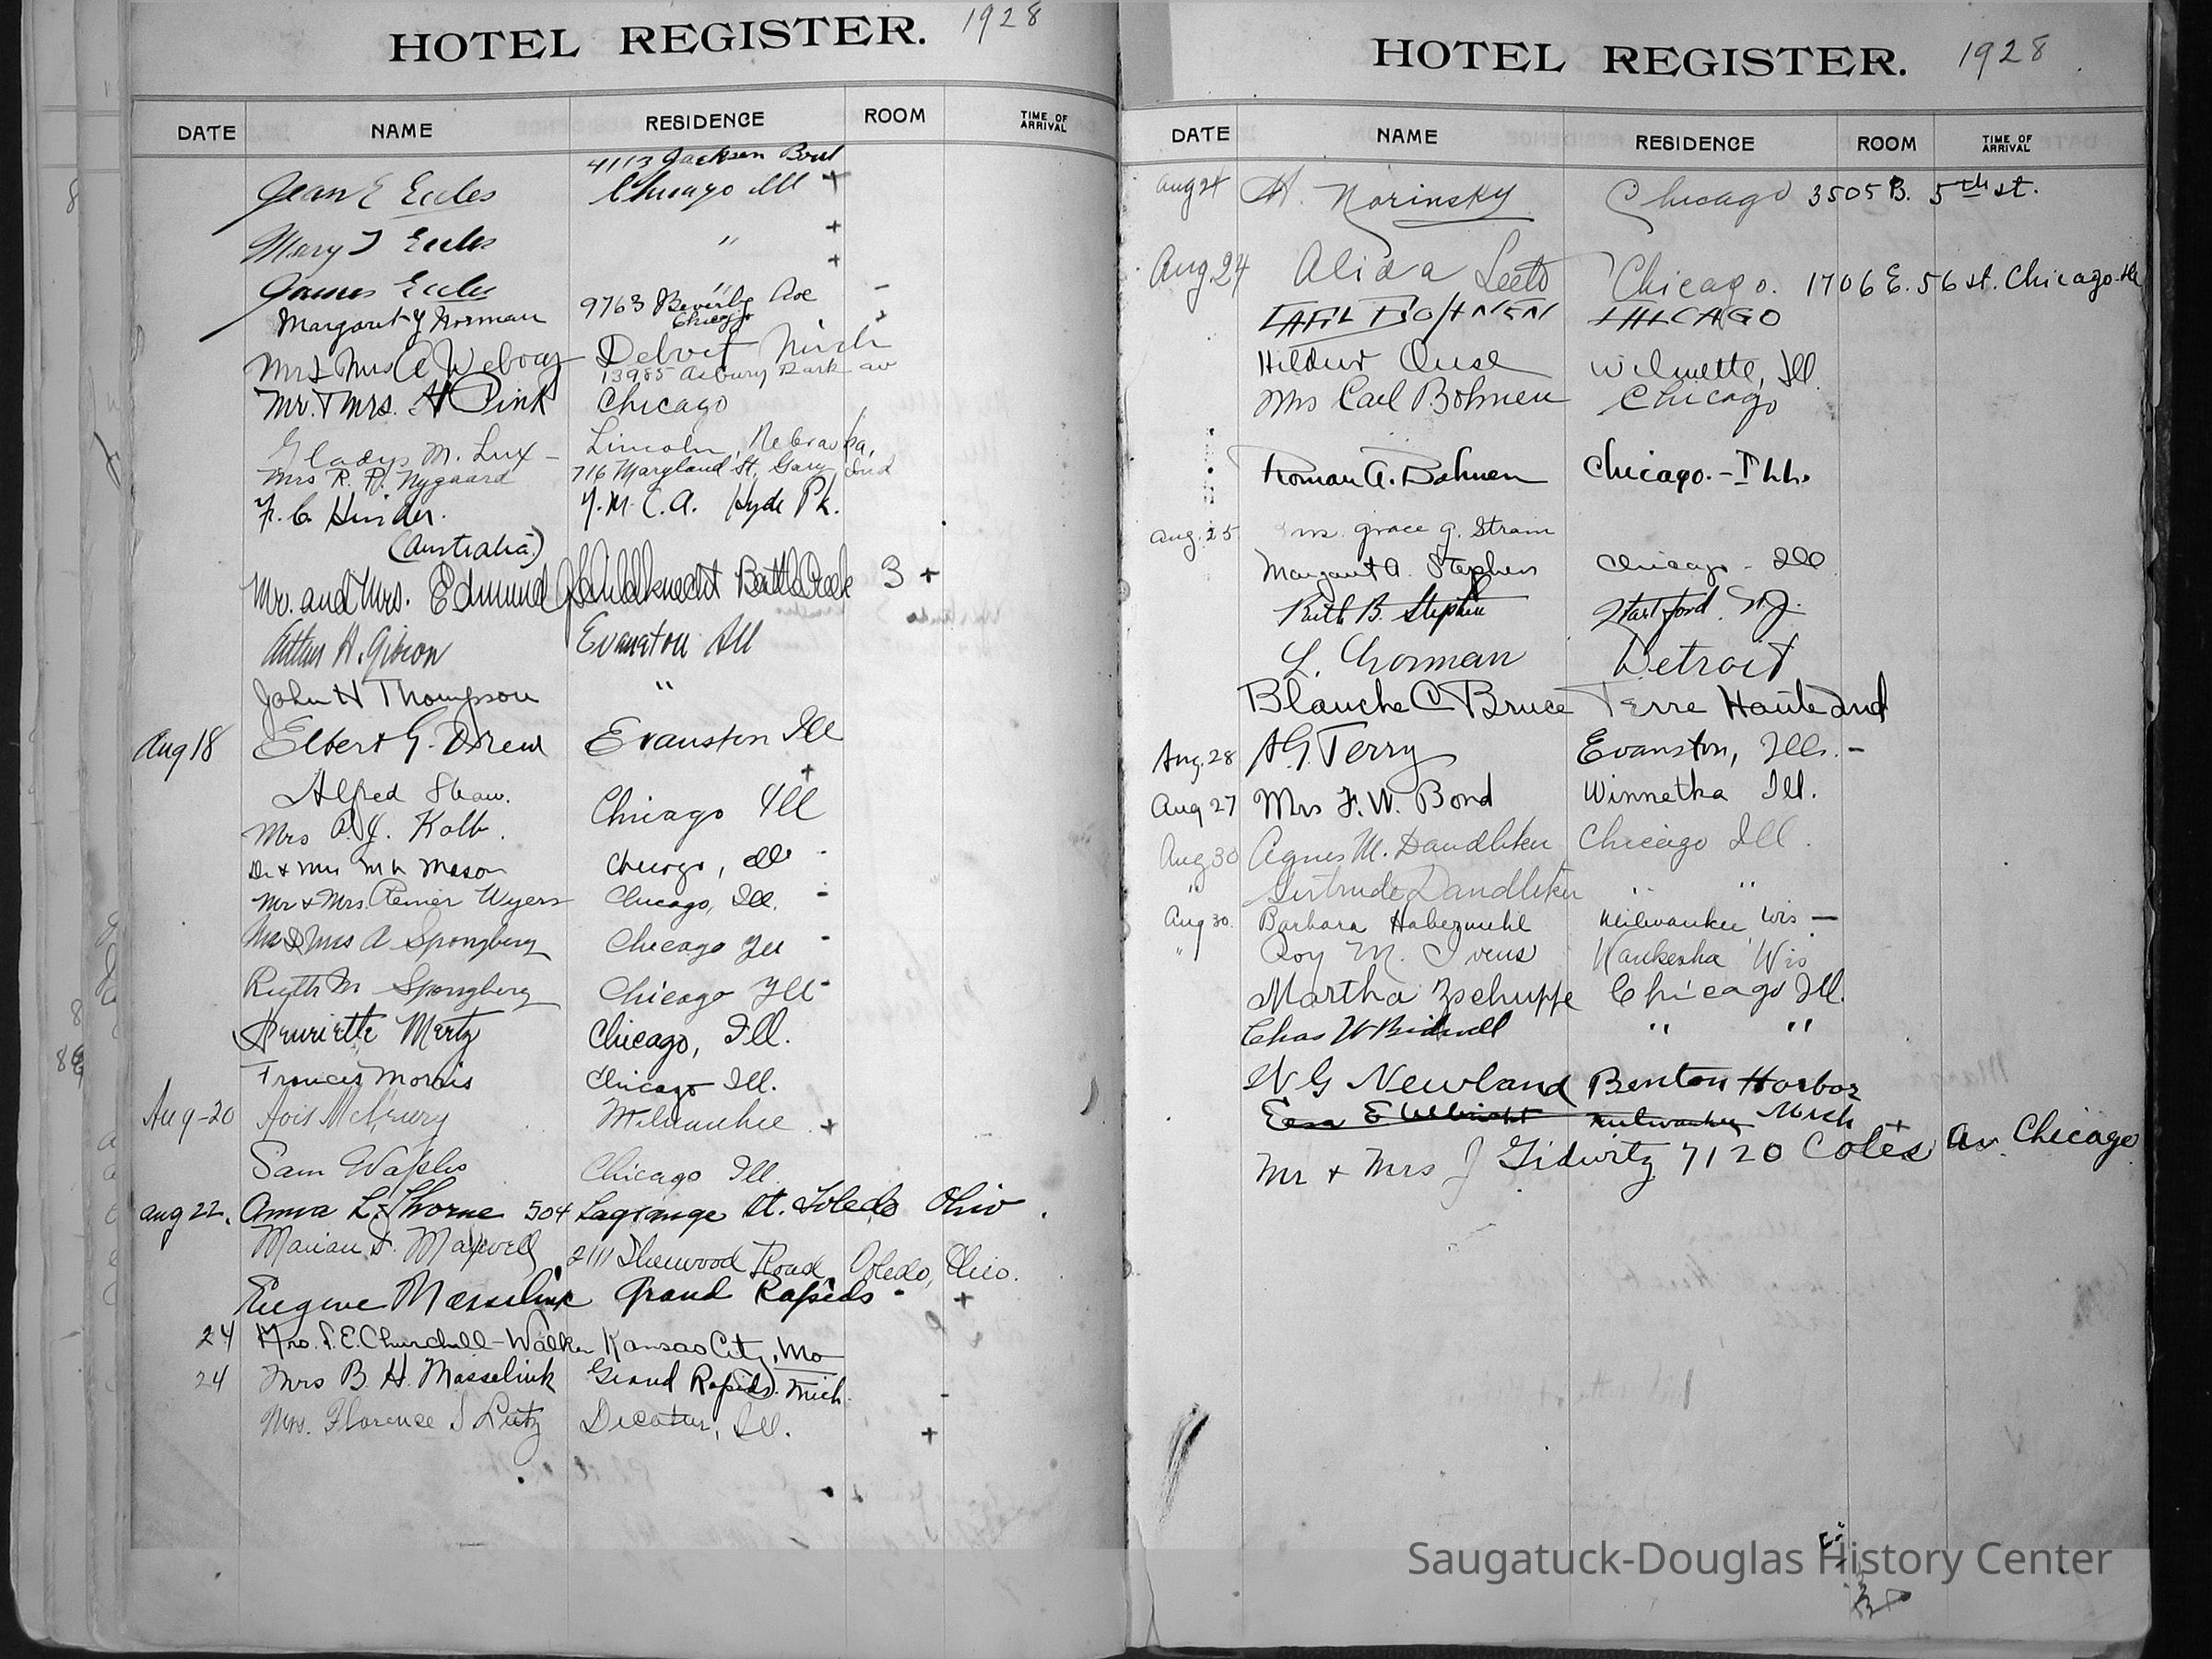 HOTEL REGISTER. 1928
DATE NAME RESIDENCE ROOM TIME OF ARRIVAL
4113 Jackson Boul
Jean E Eccles Chicago Ill +
Mary J Eccles " +
James Eccles " +
Margaret Y Norman 9763 Beverly Ave -
Chicago
Mr & Mrs A Detroit Mich
13985 Asbury Park av
Mr. & Mrs. H Pink Chicago
Gladys M. Lux - Lincoln, Nebraska,
Mrs R. R. Nygaard 716 Maryland St, Gary Ind
F. C. Hinder. Y.M.C.A. Hyde Pk.
(Australia)
Mr. and Mrs. Edmund Schildknecht Battle Creek 3 +
Arthur H. Gibson Evanston Ill
John H Thompson "
Aug 18 Elbert G. Drew Evanston Ill
+
Alfred Shaw. Chicago Ill
Mrs A. J. Kolb.
Dr & Mrs M L Mason Chicago, Ill -
Mr & Mrs. Reiner Wyers Chicago, Ill. -
Mr & Mrs A Spongberg Chicago Ill -
Ruth M Spongberg Chicago Ill -
Henriette Mertz Chicago, Ill.
Frances Morris Chicago Ill.
Aug-20 Milwaukee +
Sam Chicago Ill.
Aug 22. Anna L. Thorne 504 Lagrange St. Toledo Ohio.
Marian S. Maxwell 2111 Sherwood Road Toledo, Ohio.
Eugene Masselink Grand Rapids - +
24 Mrs. S. E. Churchill-Walker Kansas City, Mo
24 Mrs B. H. Masselink Grand Rapids. Mich. -
Mrs. Florence S Lutz Decatur, Ill. +
HOTEL REGISTER. 1928
DATE NAME RESIDENCE ROOM TIME OF ARRIVAL
Aug 24 H. Norinsky Chicago 3505 B. 5th st.
Aug. 24 Alida Chicago. 1706 E. 56 st. Chicago. Ill
CHICAGO
Hildur Wilmette, Ill.
Mrs Carl Bohnen Chicago
Roman A. Bohnen Chicago. - Ill.
Aug. 25 grace g. Strain
Margaret A. Stephens Chicago - Ill
Ruth B. Hartford
L. Detroit
Blanche C Bruce Terre Haute Ind
Aug. 28 A. G. Terry Evanston, Ills. -
Aug 27 Mrs F. W. Bond Winnetka Ill.
Aug 30 Agnes M. Dandliker Chicago Ill.
" Gertrude Dandliker " "
Aug 30. Barbara Habermehl Milwaukee, Wis -
" Roy M. Ivens Waukesha Wis
Martha Zschuppe Chicago Ill.
Chas W Bidwell " "
W G Newland Benton Harbor
Mich
Mr & Mrs J Gidwitz 7120 Coles Av. Chicago
Saugatuck-Douglas History Center